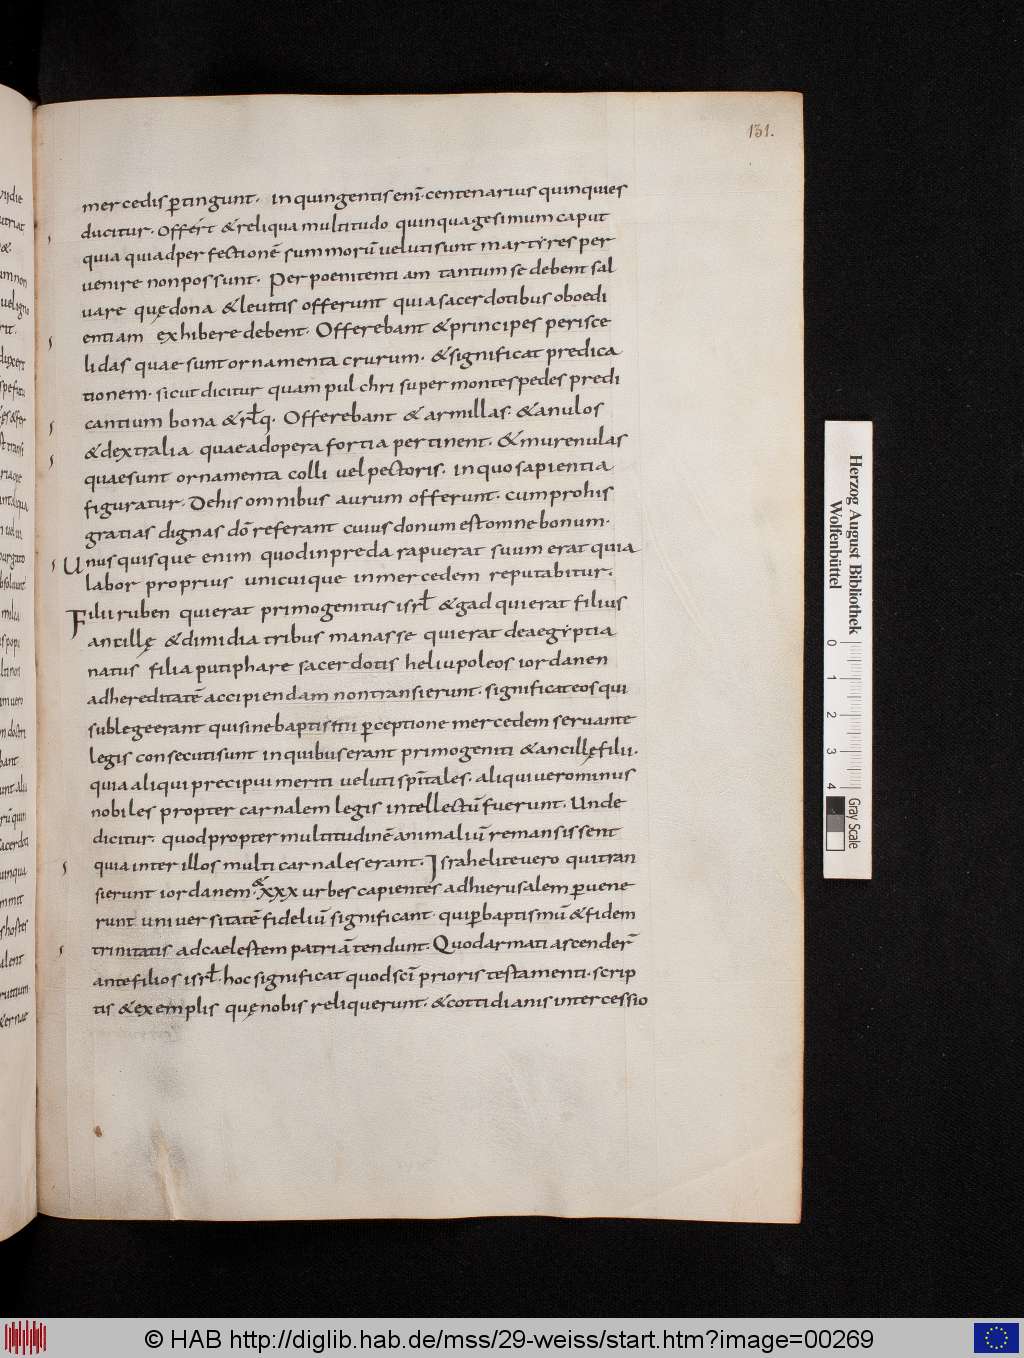 131.
mercedis ꝑtingunt. inquingentis enī centenarius quinquies
ducitur. offert &reliqua multitudo quinquagesimum caput
quia quiadperfectionē summorū uelutisunt martẏres per
uenire nonpossunt. Per poenitentiam tantum se debent sal
uare quędona &leuitis offerunt quiasacerdotibus oboedi
entiam exhibere debent. Offerebant &principes perisce
lidas quae sunt ornamenta crurum. &significat predica
tionem. sicut dicitur quam pulchri super montes pedes predi
cantium bona &rłq. Offerebant & armillas. &anulos
&dextralia quaeadopera fortia pertinent. &murenulas
quaesunt ornamenta colli uelpectoris. inquo sapientia
figuratur. Dehis omnibus aurum offerunt. cumprohis
gratias dignas dō referant cuius donum est omne bonum.
Unusquisque enim quodinpreda rapuerat suum erat quia
labor proprius unicuique inmercedem reputabitur.
Filii ruben quierat primogenitus isrł &gad quierat filius
ancillę &dimidia tribus manasse quierat deaegẏptia
natus filia putiphare sacerdotis heliupoleos iordanen
adhereditatē accipiendam nontransierunt. significateosqui
sublegeerant quisinebaptismi ꝑceptione mercedem seruante
legis consecutisunt inquibuserant primogeniti &ancillęfilii.
quia aliqui precipui meriti ueluti spītales. aliqui uerominus
nobiles propter carnalem legis intellectū fuerunt. Unde
dicitur. quodpropter multitudinē animaliū remansissent
quia inter illos multi carnales erant. Israhelite uero quitran
sierunt iordanem. & xxx urbes capientes adhierusalem ꝑuene
runt uniuersitatē fideliū significant. quiꝑbaptismū &fidem
trinitatis adcaelestem patriā tendunt. Quodarmati ascenderr̄
antefilios isrł. hoc significat quodscī prioris testamenti. scrip
tis &exemplis quę nobis reliquerunt. &cottidianis intercessio
Herzog August Bibliothek
Wolfenbüttel
0 1 2 3 4
Gray Scale
© HAB http://diglib.hab.de/mss/29-weiss/start.htm?image=00269